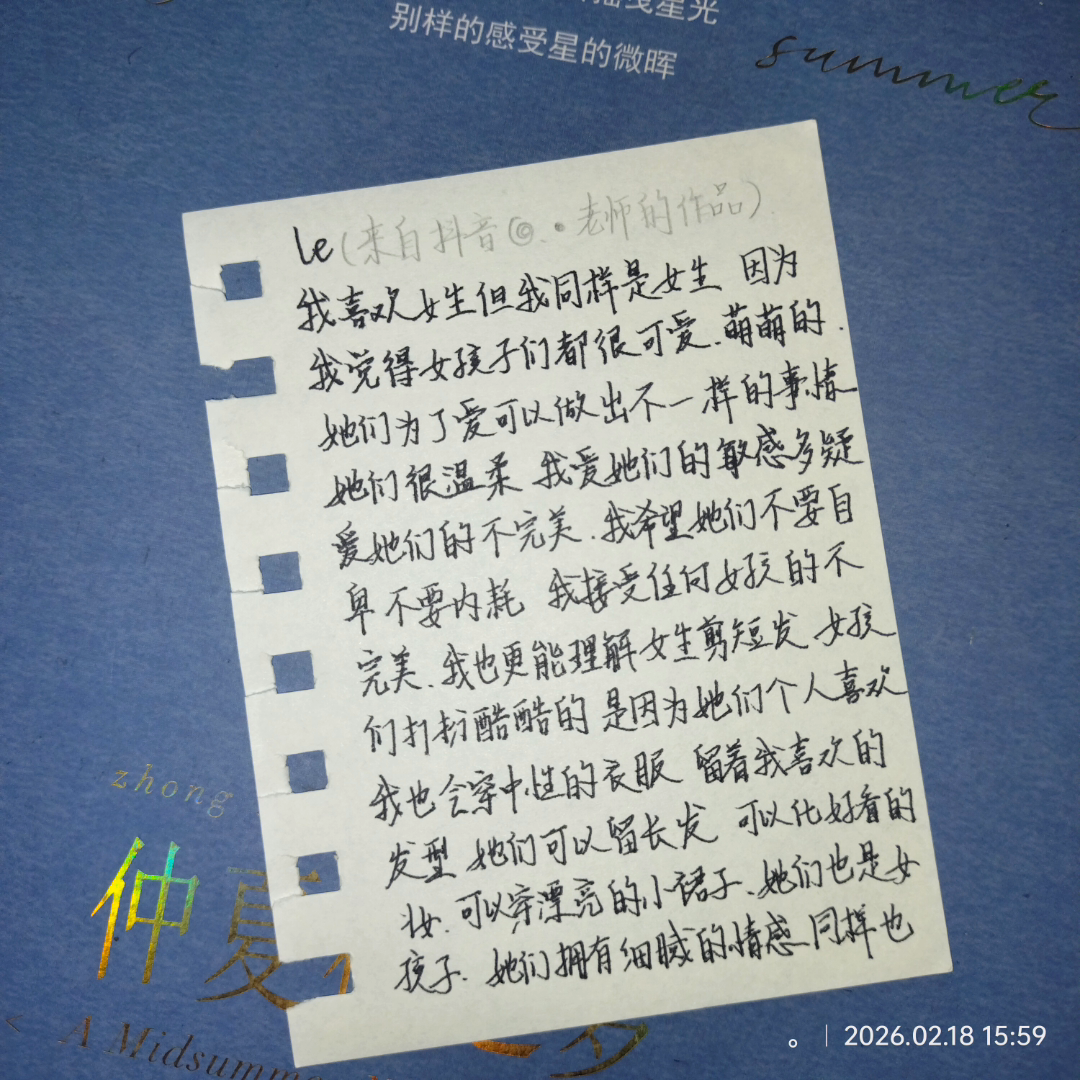 星光
别样的感受星的微晖
summer
le(来自抖音@.·老师的作品)
我喜欢女生但我同样是女生 因为
我觉得女孩子们都很可爱.萌萌的.
她们为了爱可以做出不一样的事情
她们很温柔 我爱她们的敏感多疑
爱她们的不完美.我希望她们不要自
卑不要内耗 我接受任何女孩的不
完美.我也更能理解女生剪短发 女孩
们打扮酷酷的 是因为她们个人喜欢
我也会穿中性的衣服 留着我喜欢的
发型 她们可以留长发 可以化好看的
妆.可以穿漂亮的小裙子.她们也是女
孩子.她们拥有细腻的情感 同样也
zhong
仲夏
A Midsumm
。 | 2026.02.18 15:59